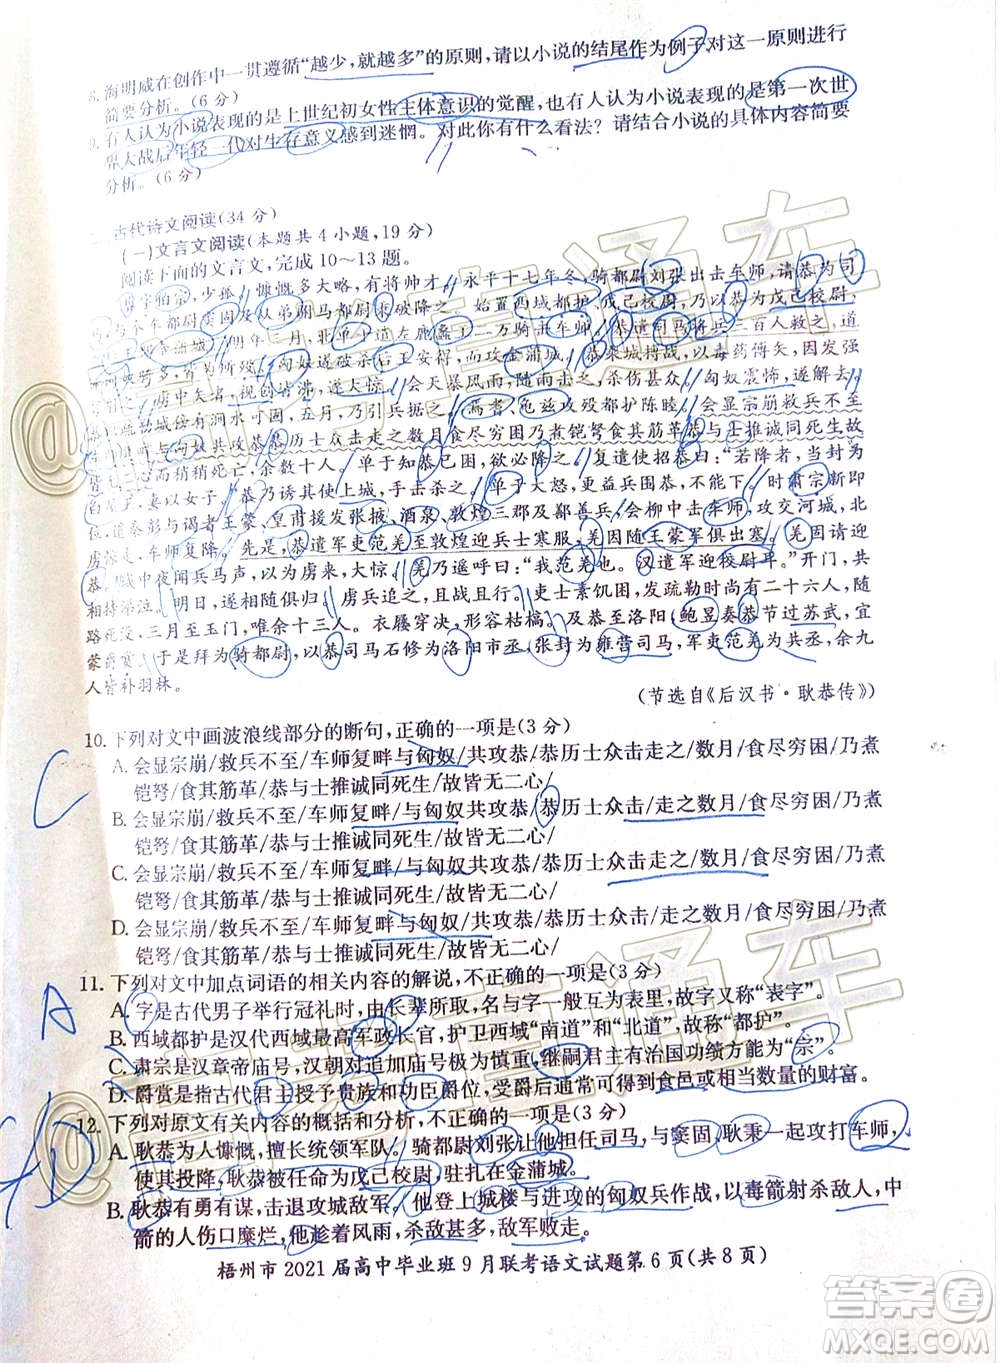 8. 海明威在创作中一贯遵循“越少,就越多”的原则,请以小说的结尾作为例子,对这一原则进行
简要分析。(6分)
9. 有人认为小说表现的是上世纪初女性主体意识的觉醒,也有人认为小说表现的是第一次世
界大战后年轻一代对生存意义感到迷惘。对此你有什么看法?请结合小说的具体内容简要
分析。(6分)
古代诗文阅读(34分)
(一)文言文阅读(本题共4小题,19分)
阅读下面的文言文,完成10～13题。
字伯宗,少孤。慷慨多大略,有将帅才。永平十七年冬,骑都尉刘张出击车师,请恭为司
马,与奉车都尉窦固及从弟驸马都尉秉破降之。始置西域都护、戊己校尉,乃以恭为戊己校尉,屯
金蒲城。明年三月,北单于遣左鹿蠡王二万骑击车师。恭遣司马将兵三百人救之,道
逢匈奴骑多,
匈奴遂破杀后王安得,而攻金蒲城。恭乘城搏战,以毒药傅矢。因发强
虏中矢者,视创皆沸,遂大惊。会天暴风雨,随雨击之,杀伤甚众。匈奴震怖,
疏勒城傍有涧水可固,五月,乃引兵据之。焉耆、龟兹攻都护陈睦。会显宗崩救兵不至车师
复畔与匈奴共攻恭恭历士众击走之数月食尽穷困乃煮铠弩食其筋革恭与士推诚同死生故
皆无二心而稍稍死亡,余数十人。单于知恭已困,欲必降之。复遣使招恭曰:“若降者,当封为
白屋王,妻以女子。”恭乃诱其使上城,手击杀之。单于大怒,更益兵围恭,不能下。时肃宗新即
位,遣秦彭与谒者王蒙、皇甫援发张掖、酒泉、敦煌三郡及鄯善兵,会柳中击车师,攻交河城,
虏惊走,车师复降。先是,恭遣军吏范羌至敦煌迎兵士寒服,羌因随王蒙军俱出塞。羌固请迎
恭。城中夜闻兵马声,以为虏来,大惊。羌乃遥呼曰:“我范羌也。汉遣军迎校尉耳。”开门,共
相持涕泣。明日,遂相随俱归。虏兵追之,且战且行。吏士素饥困,发疏勒时尚有二十六人,随
路死没,三月至玉门,唯余十三人。衣屦穿决,形容枯槁。及恭至洛阳,鲍昱奏恭节过苏武,宜
蒙爵赏。于是拜为骑都尉,以恭司马石修为洛阳市丞,张封为雍营司马,军吏范羌为共丞,余九
人皆补羽林。
(节选自《后汉书·耿恭传》)
10. 下列对文中画波浪线部分的断句,正确的一项是(3分)
A. 会显宗崩/救兵不至/车师复畔与匈奴/共攻恭/恭历士众击走之/数月/食尽穷困/乃煮
铠弩/食其筋革/恭与士推诚同死生/故皆无二心/
B. 会显宗崩/救兵不至/车师复畔/与匈奴共攻恭/恭历士众击/走之数月/食尽穷困/乃煮
铠弩/食其筋革/恭与士推诚同死生/故皆无二心/
C. 会显宗崩/救兵不至/车师复畔/与匈奴共攻恭/恭历士众击走之/数月/食尽穷困/乃煮
铠弩/食其筋革/恭与士推诚同死生/故皆无二心/
D. 会显宗崩/救兵不至/车师复畔与匈奴/共攻恭/恭历士众击/走之数月/食尽穷困/乃煮
铠弩/食其筋革/恭与士推诚同死生/故皆无二心/
11. 下列对文中加点词语的相关内容的解说,不正确的一项是(3分)
A. 字是古代男子举行冠礼时,由长辈所取,名与字一般互为表里,故字又称“表字”。
B. 西域都护是汉代西域最高军政长官,护卫西域“南道”和“北道”,故称“都护”。
C. 肃宗是汉章帝庙号,汉朝对追加庙号极为慎重,继嗣君主有治国功绩方能为“宗”。
D. 爵赏是指古代君主赐封贵族和功臣爵位,并赏赐他们一定数量的食邑或相当数量的财富。
12. 下列对原文有关内容的概括和分析,不正确的一项是(3分)
A. 耿恭为人慷慨,擅长统领军队。骑都尉刘张让他担任司马,与窦固、耿秉一起攻打车师,
使其投降,耿恭被任命为戊己校尉,驻扎在金蒲城。
B. 耿恭有勇有谋,击退攻城敌军。他登上城楼与进攻的匈奴兵作战,以毒箭射杀敌人,中
箭的人伤口糜烂,他趁着风雨,杀敌甚多,敌军败走。
梧州市2021届高中毕业班9月联考语文试题第6页(共8页)
C
A
D
答案圈
MXQE.COM